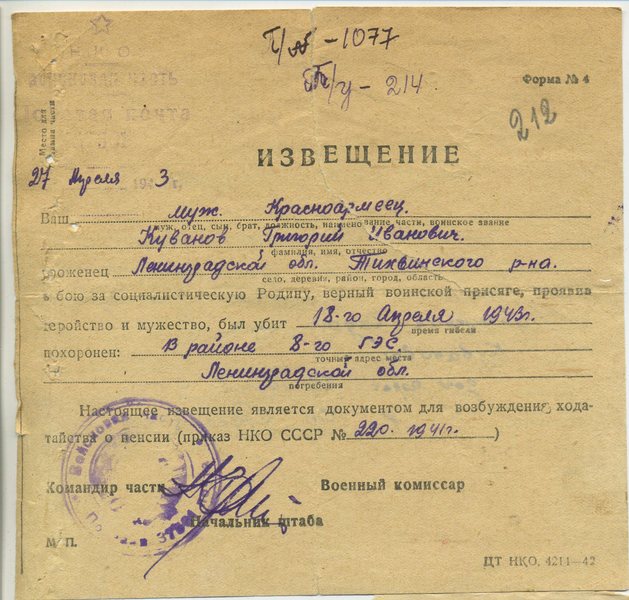 П/пб-1077
214
Форма № 4
212
Н К О
войсковая часть
Полевая почта
Место для
ИЗВЕЩЕНИЕ
27 Апреля 194 3 г.
Ваш муж. Красноармеец.
муж, отец, сын, брат, должность, наимено вание части, воинское звание
Куванов Григорий Иванович.
фамилия, имя, отчество
уроженец Ленинградской обл. Тихвинского р-на.
село, деревня, район, город, область
в бою за социалистическую Родину, верный воинской присяге, проявив
геройство и мужество, был убит 18-го Апреля 1943г.
время гибели
похоронен: В районе 8-го ГЭС.
точный адрес места
Ленинградской обл.
погребения
Настоящее извещение является документом для возбуждения хода-
тайства о пенсии (приказ НКО СССР № 220. 1941г. )
Командир части Военный комиссар
Начальник штаба
М. П.
ЦТ НКО. 4214—42